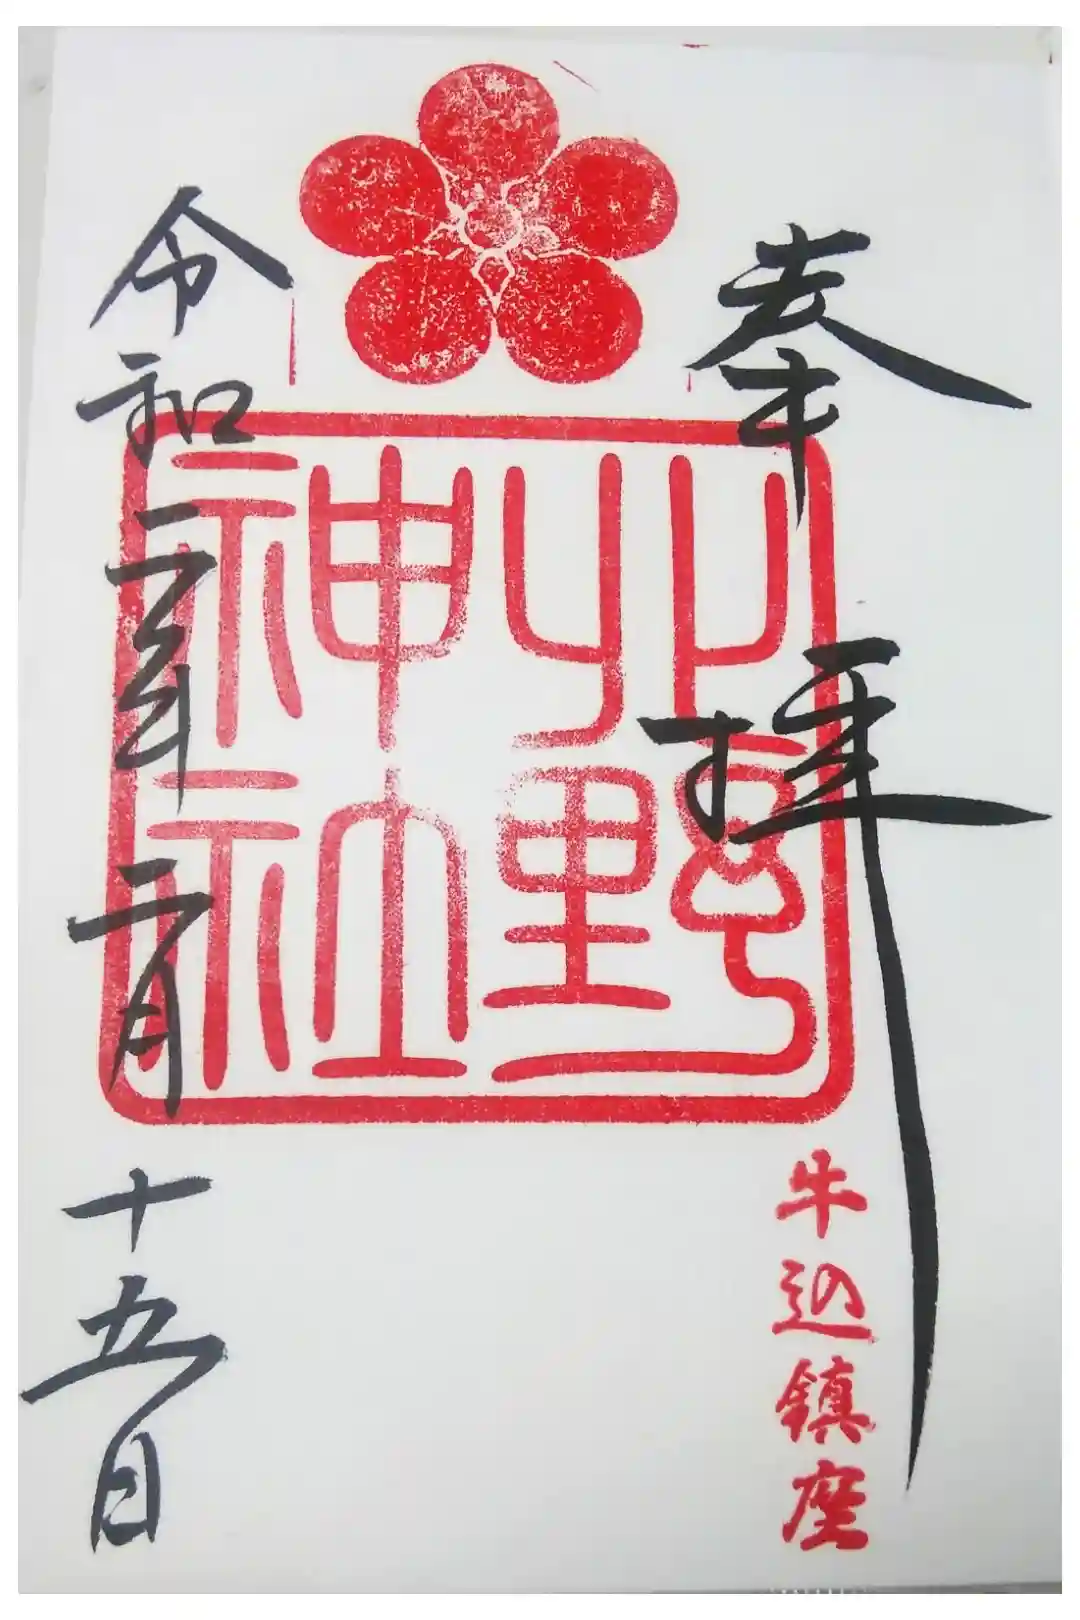 奉拝
牛込鎮座
北野
神社
令和二年二月十五日